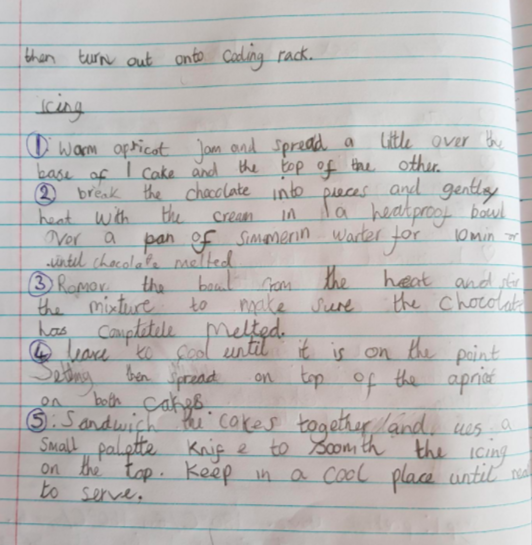 then turn out onto Coding rack.
Icing
1 Warm apricot jam and spread a little over the
base of 1 Cake and the top of the other.
2 break the chocolate into pieces and gently
heat with the cream in a heatproof bowl
Ovor a pan of simmerin warter for 10 min or
until chocolate melted
3 Ramov the bowl from the heat and stir
the mixture to make sure the Chocolate
has Comptetele Melted.
4 leave to Cool until it is on the point
Setting then spread on top of the apricot
on both Cakes
5: Sandwich the cakes together and ues a
Small palatte Knife to Soomth the icing
on the top. Keep in a cool place until
to serve.